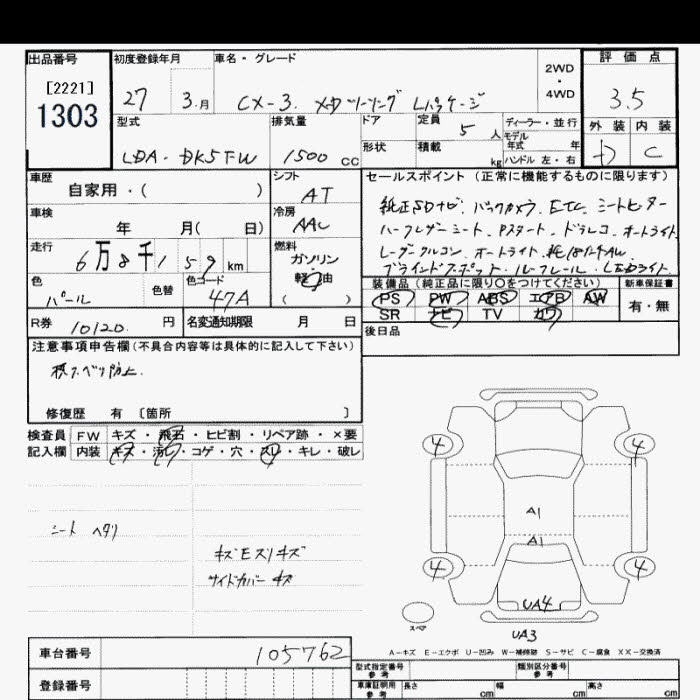 出品番号
[2221]
1303
初度登録年月
27 3.月
車名・グレード
CX-3. XDツーリング Lパッケージ
2WD
・
4WD
評価点
3.5
外装 内装
D C
型式
LDA-DK5FW
排気量
1500 CC
ドア
形状
定員 5 人
積載 kg
ディーラー・並行
モデル
年式 年
ハンドル 左・右
車歴
自家用・( )
シフト
AT
車検
年 月( 日)
冷房
AAC
走行
6万8千159km
燃料
ガソリン
軽油
( )
色
パール
色替
色コード
47A
R券 10120. 円
名変通知期限 月 日
セールスポイント(正常に機能するものに限ります)
純正SDナビ. バックカメラ. ETC. シートヒーター
ハーフレザーシート. Pスタート. ドラレコ. オートライト
レーダークルコン. オートライト. 純18インチAW
ブラインドスポット. ルーフレール. LEDライト.
装備品(純正品に限り○をつけてください)
PS PW ABS エアB AW
SR ナビ TV カワ
新車保証書
有・無
後日品
注意事項申告欄(不具合内容等は具体的に記入して下さい)
横スベリ防止.
修復歴 有 〔箇所 〕
検査員
記入欄
FW キズ・飛石・ヒビ割・リペア跡・×要
内装 キズ・汚レ・コゲ・穴・スレ・キレ・破レ
シート ヘタリ
キズEスリキズ
サイドカバー キズ
4 4
A1
A1
4 4
UA4
スペア
UA3
A-キズ E-エクボ U-凹み W-補修跡 S-サビ C-腐食 XX-交換済
車台番号 105762
登録番号
型式指定番号
参考
類別区分番号
参考
車庫証明用
参考
長さ cm 幅 cm 高さ cm